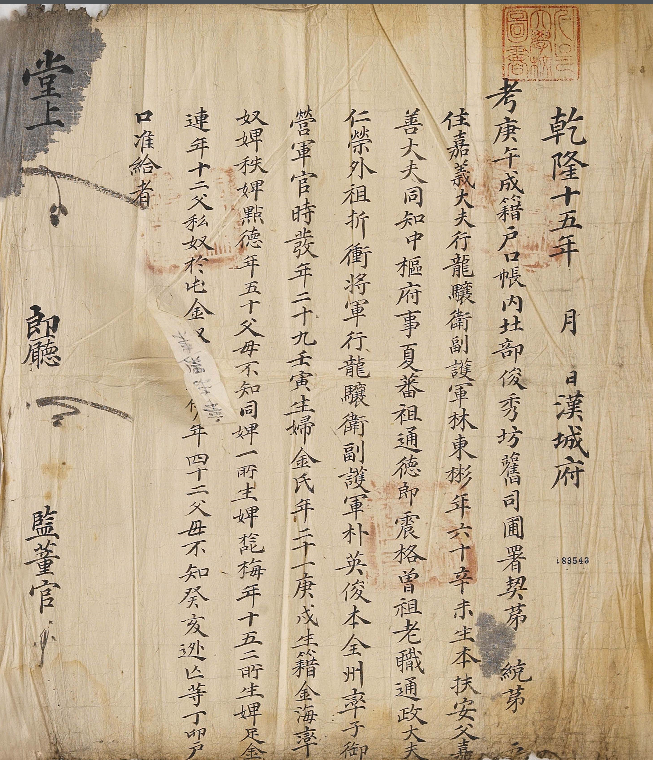 乾隆十五年 月 日漢城府
考庚午成籍戶口帳內北部俊秀坊舊司圃署契苐 統苐
住嘉義大夫行龍驤衛副護軍林東彬年六十辛未生本扶安父嘉
善大夫同知中樞府事夏蕃祖通德郎震格曾祖老職通政大夫
仁榮外祖折衝將軍行龍驤衛副護軍朴英俊本全州率子御
營軍官時發年二十九壬寅生婦金氏年二十一庚戌生籍金海率
奴婢秩婢點德年五十父母不知同婢一所生婢 梅年十五二所生婢足金
連年十二父私奴於屯金 年四十二父母不知癸亥逃亡等丁卯戶
口准給者
堂上
郎廳
監董官
183543